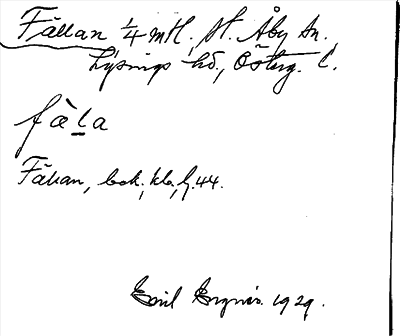 Fällan 1/4 mtl, St. Åby sn,
Lysings hd., Österg. l.
fäla
Fällan, bok., kb., bl. 44.
Emil 1929.